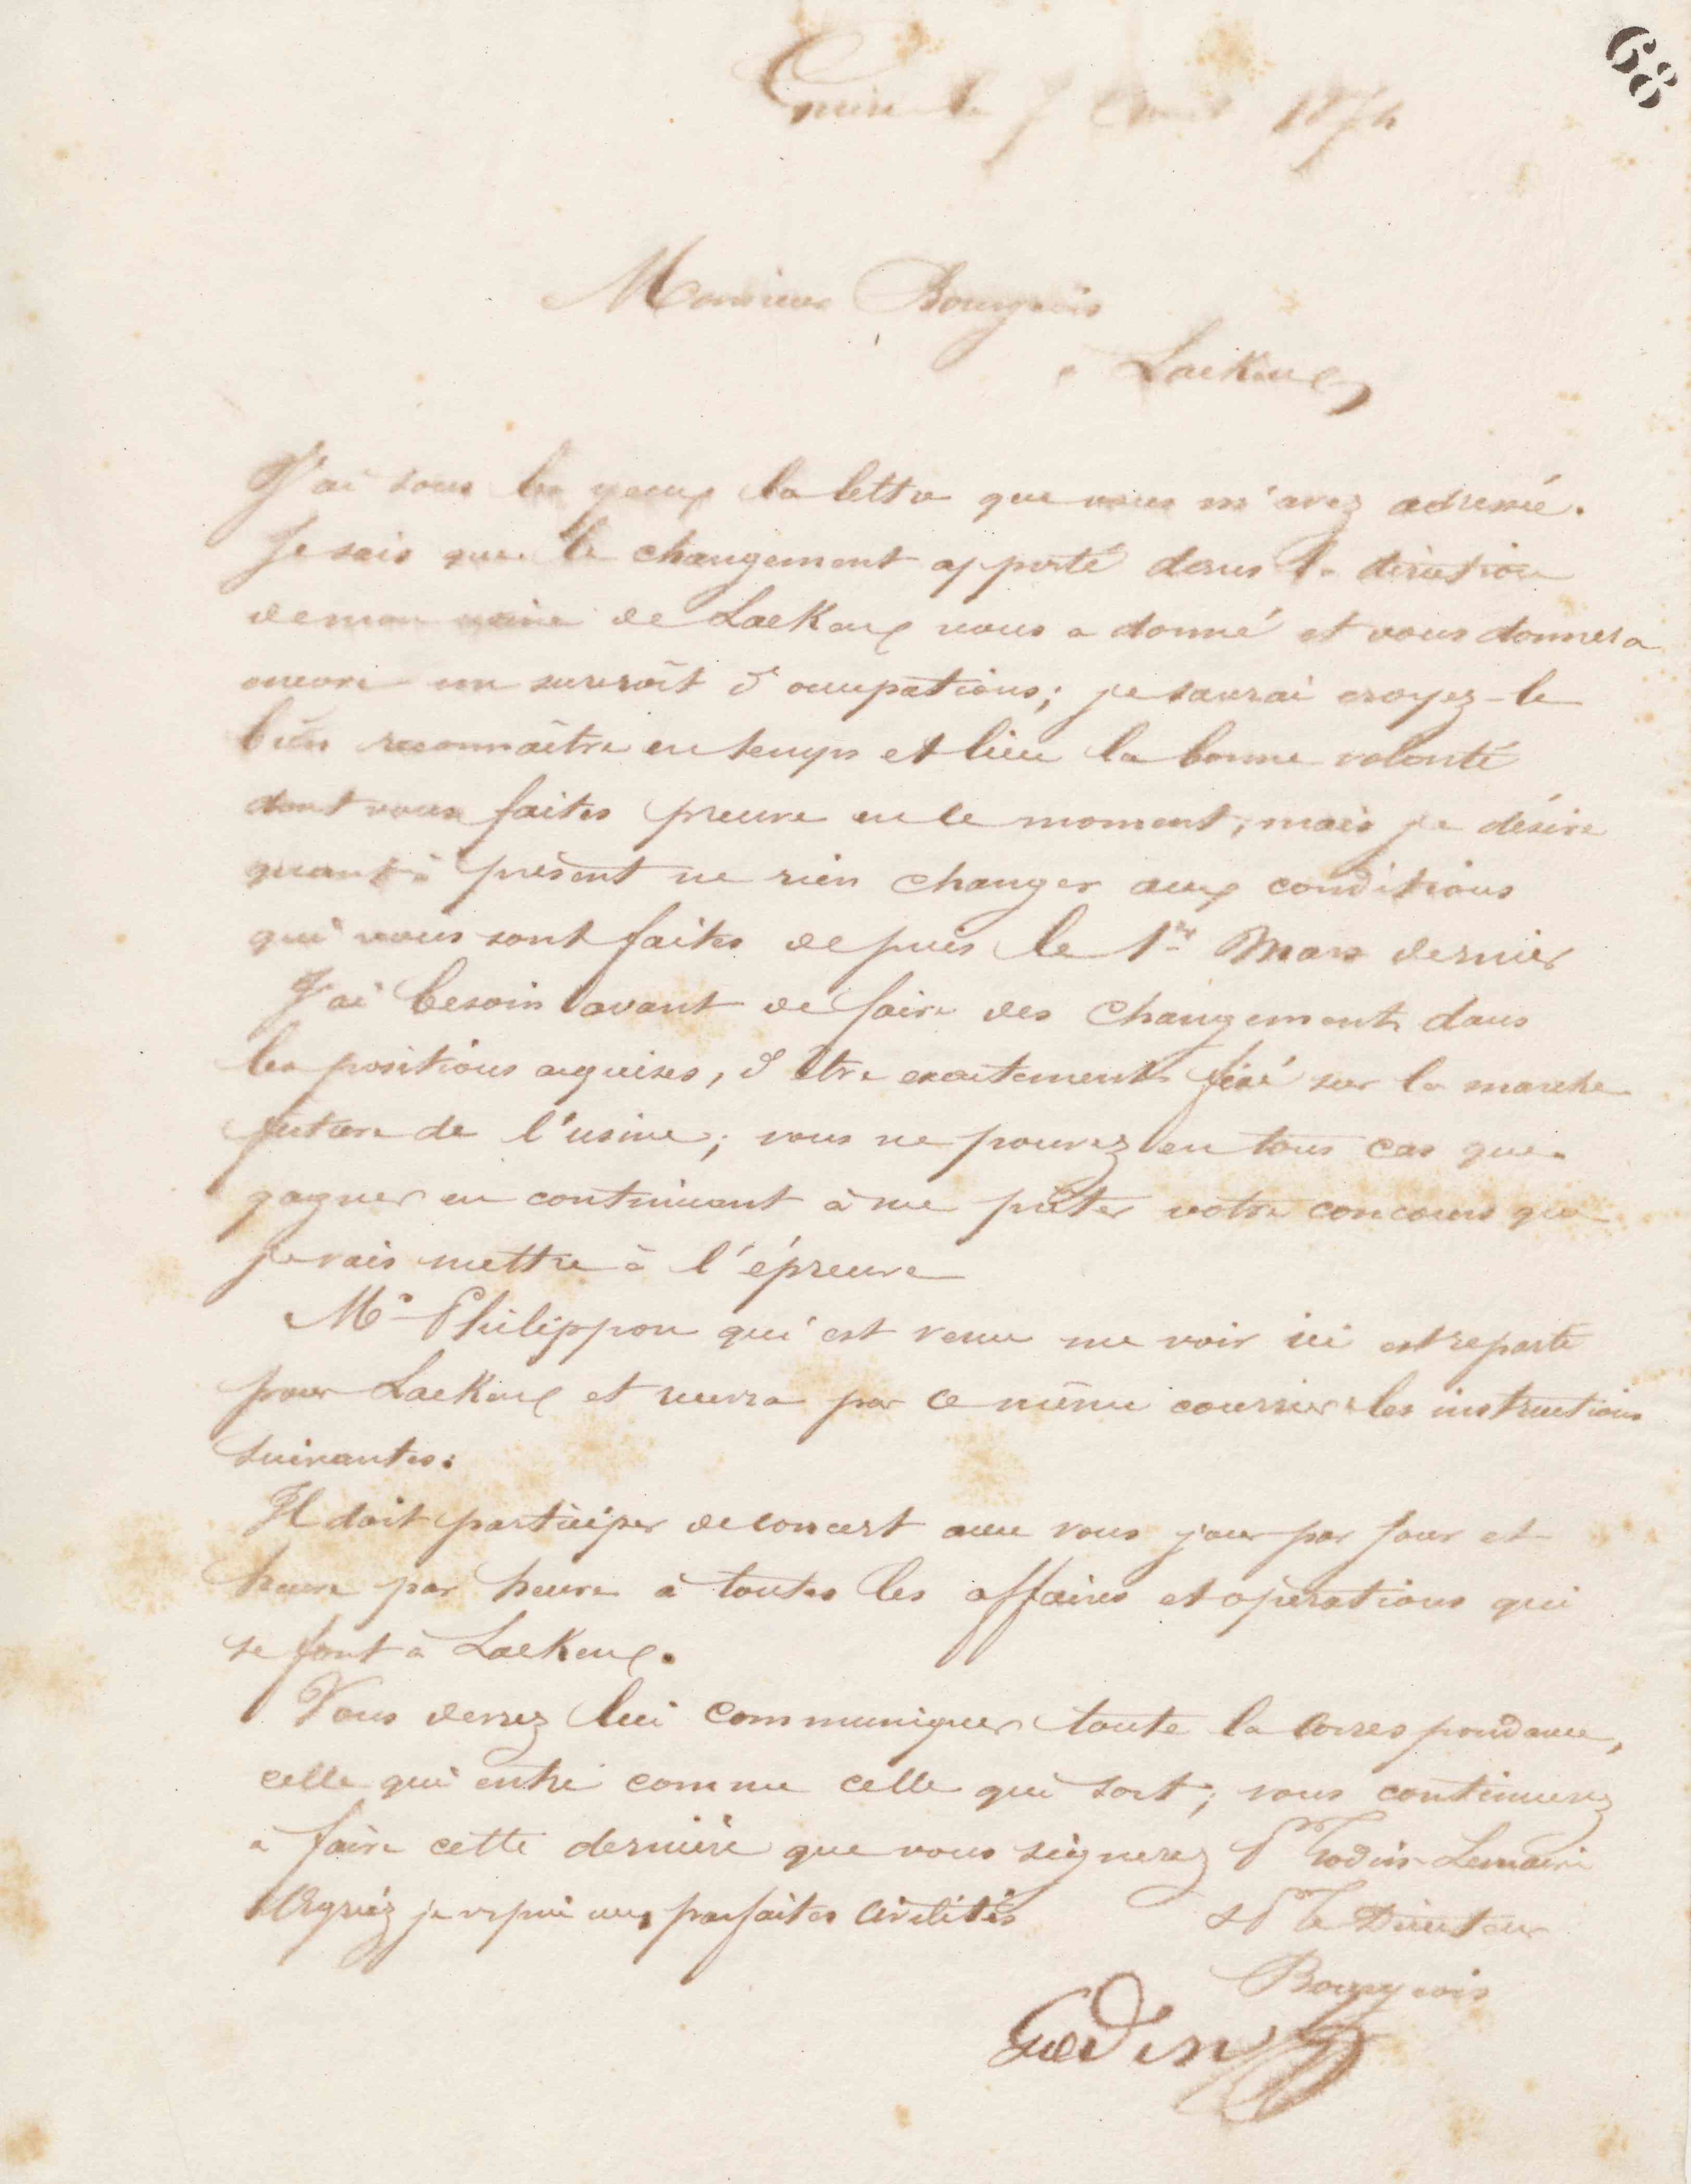 68
Guise le 7 Avril 1874
Monsieur Bourgeois
à Laeken
J'ai sous les yeux la lettre que vous m'avez adressée.
Je sais que le changement apporté dans la direction
de mon usine de Laeken vous a donné et vous donnera
encore un surcroît d'occupations; je saurai croyez-le
bien reconnaître en temps et lieu la bonne volonté
dont vous faites preuve en ce moment; mais je désire
quant à présent ne rien changer aux conditions
qui vous sont faites depuis le 1er Mars dernier
J'ai besoin avant de faire des changements dans
les positions acquises, d'être exactement fixé sur la marche
future de l'usine; vous ne pouvez en tous cas que
gagner en continuant à me prêter votre concours que
je vais mettre à l'épreuve
Mr Philippon qui est venu me voir ici est reparti
pour Laeken et recevra par ce même courrier les instructions
suivantes:
Il doit participer de concert avec vous jour par jour et
heure par heure à toutes les affaires et opérations qui
se font à Laeken.
Vous devrez lui communiquer toute la correspondance,
celle qui entre comme celle qui sort; vous continuerez
à faire cette dernière que vous signerez Pr Godin-Lemaire
Agréez je vs prie mes parfaites civilités
Pr le Directeur
Bourgeois
Godin